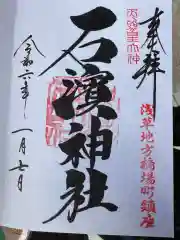 奉拝
天照皇大神
浅草地方橋場町鎮座
石濱神社
令和六年
一月七日